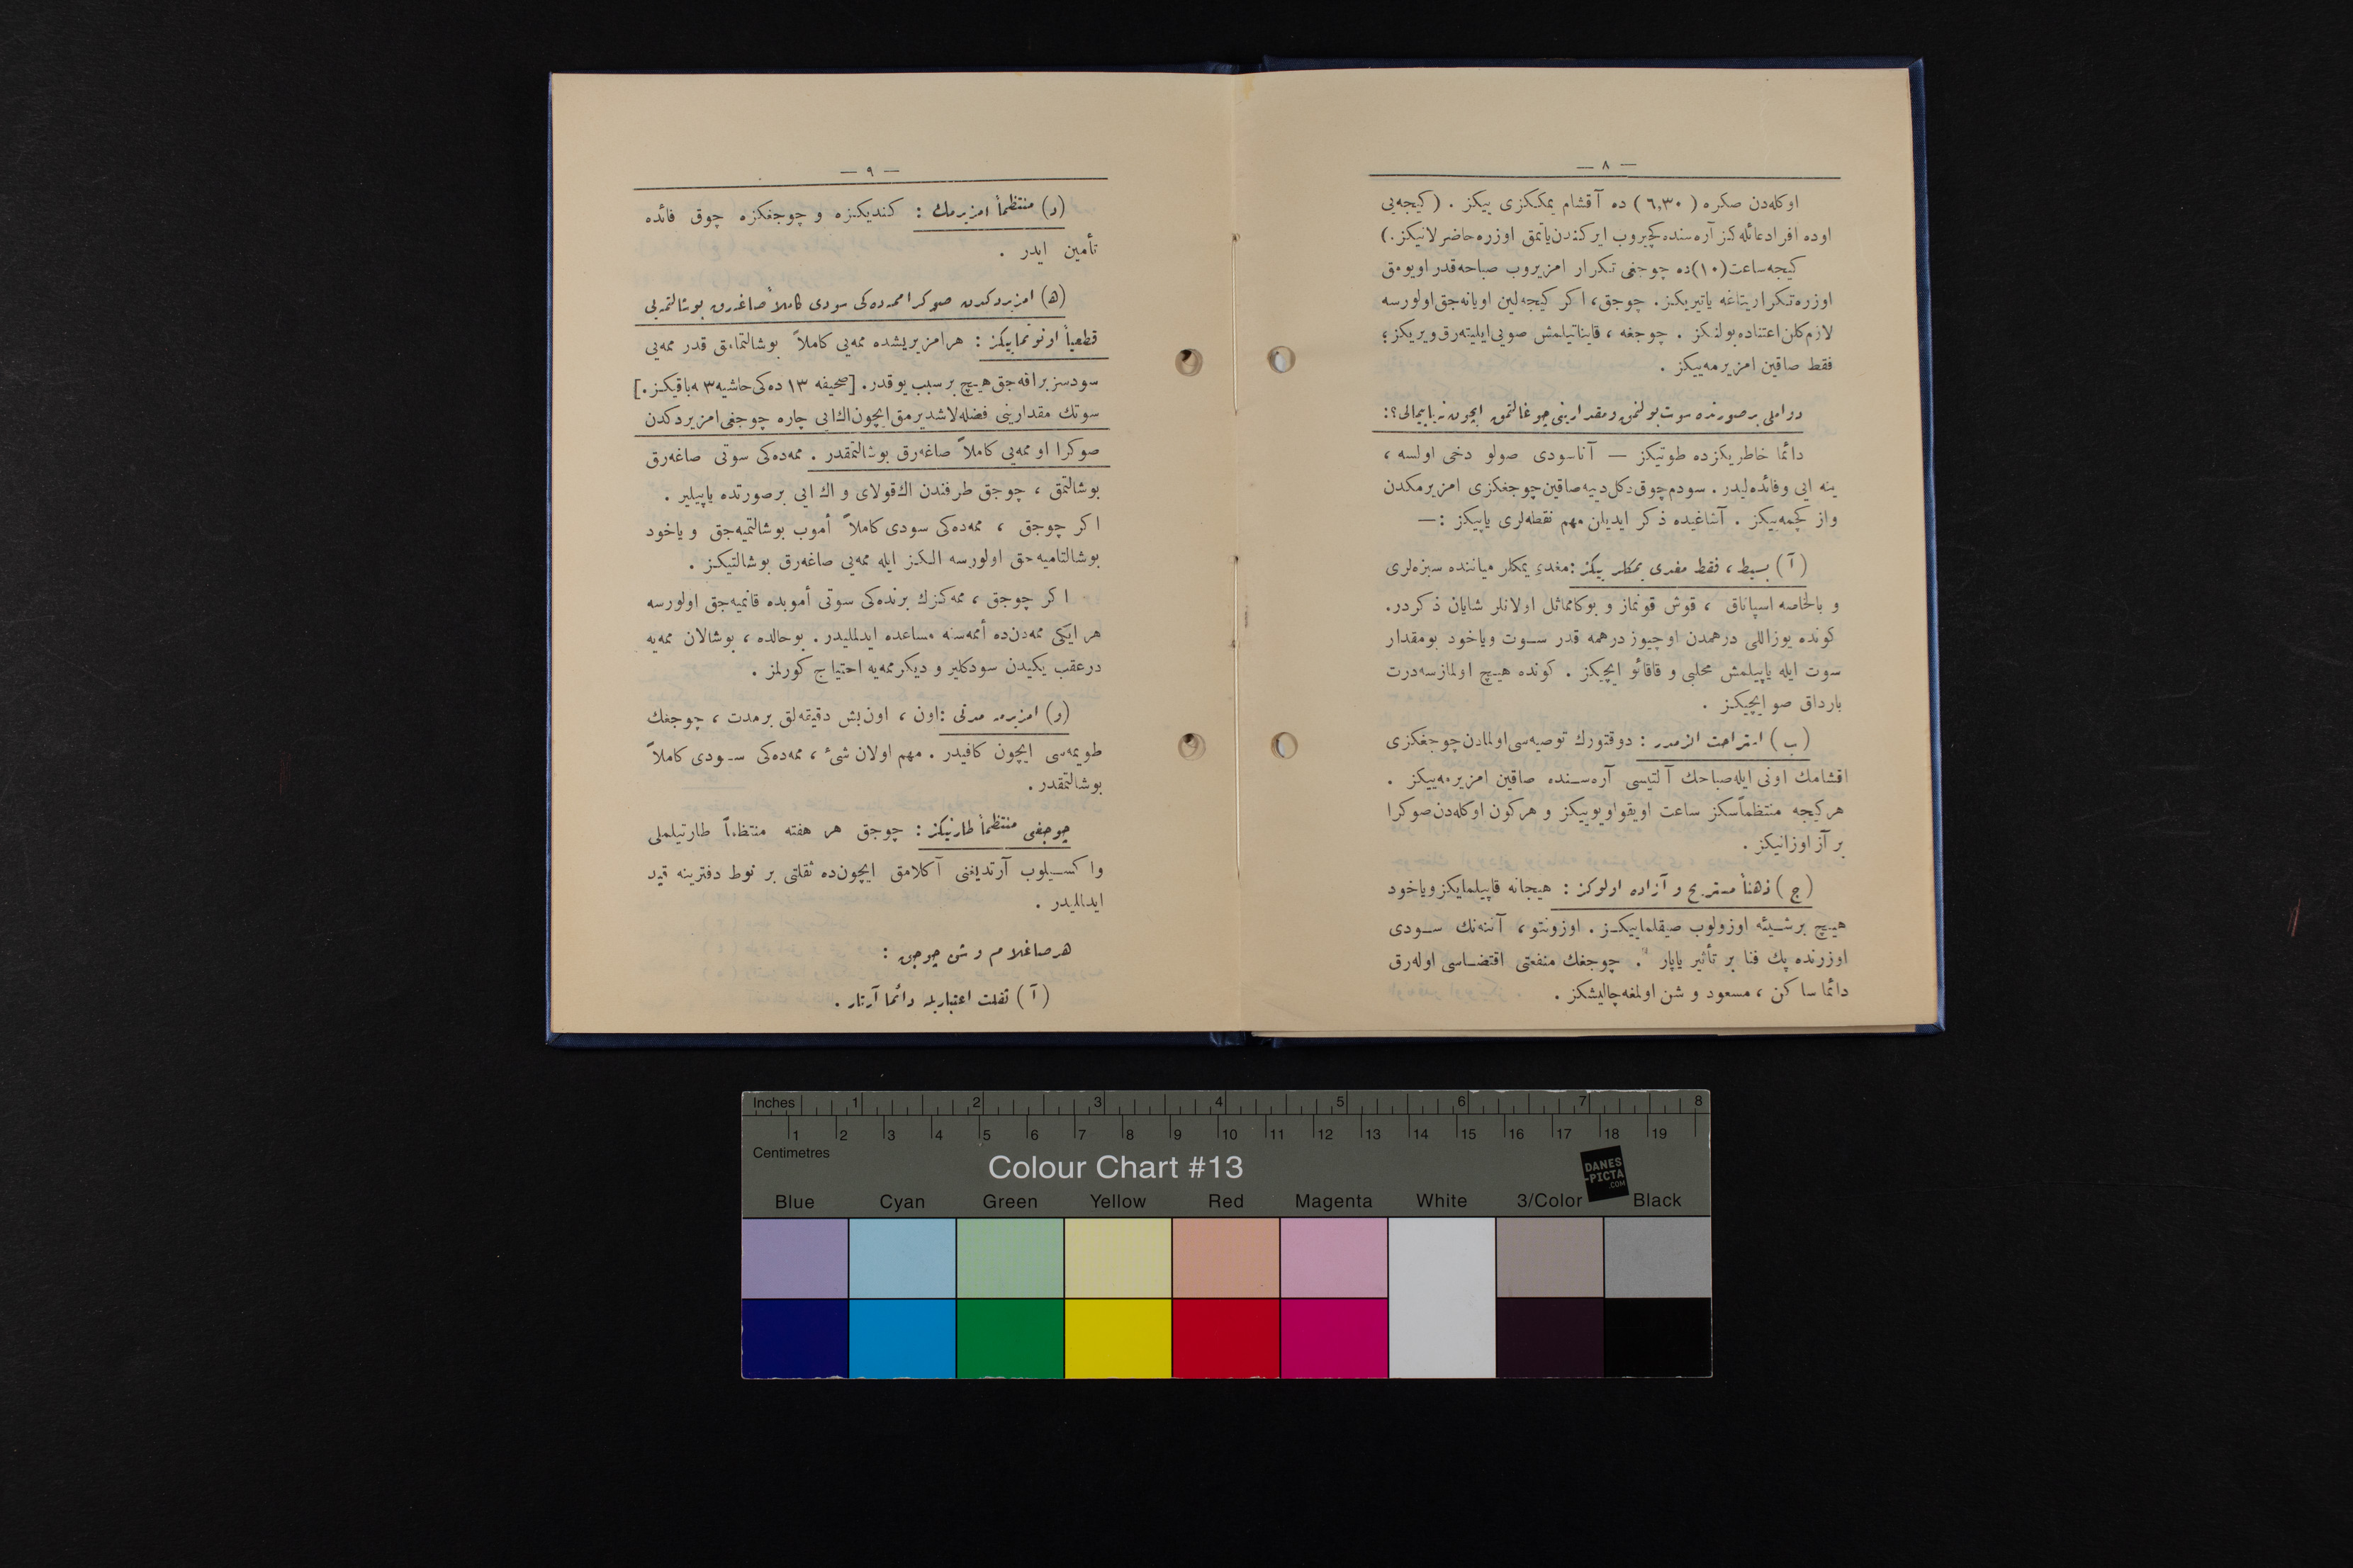 — ٨ —
اوكله‌دن صكره (٦٫٣٠) ده آقشام يمككزى ييكز . (كيجه‌يى
اوده افراد عائله‌كز آره‌سنده كچيروب ايركندن ياتمق اوزره حاضرلانيكز.)
كيجه ساعت (١٠) ده چوجغى تكرار امزيروب صباحه قدر اويومق
اوزره تكرار يتاغه ياتيريكز. چوجق، اكر كيجه‌لين اويانه‌جق اولورسه
لازم كلن اعتناده بولنكز . چوجغه ، قايناتيلمش صويى ايليته‌رق ويريكز ؛
فقط صاقين امزيرمه‌ييكز .
دواملى بر صورتده سوت بولنمق و مقدارينى چوغالتمق ايچون نه ياپمالى؟:
دائما خاطريكزده طوتيكز — آنا سودى صولو دخى اولسه ،
ينه ايى وفائده‌ليدر . سودم چوق دكل دييه صاقين چوجغكزى امزيرمكدن
واز كچمه‌ييكز . آشاغيده ذكر ايديلن مهم نقطه‌لرى ياپيكز :—
(آ) بسيط ، فقط مغدى يمكلر ييكز : مغدى يمكلر مياننده سبزه‌لرى
و بالخاصه اسپاناق ، قوش قونماز و بوكا مماثل اولانلر شايان ذكردر.
كونده يوزاللى درهمدن اوچيوز درهمه قدر سوت وياخود بومقدار
سوت ايله ياپيلمش محلبى و قاقائو ايچيكز . كونده هيچ اولمازسه درت
بارداق صو ايچيكز .
(ب) استراحت الزمدر : دوقتورك توصيه‌سى اولمادن چوجغكزى
اقشامك اونى ايله صباحك آلتيسى آره‌سنده صاقين امزيرمه‌ييكز .
هر كيجه منتظماً سكز ساعت اويقو اويوييكز و هركون اوكله‌دن صوكرا
بر آز اوزانيكز .
(ج) ذهناً مستريح و آزاده اولوكز : هيجانه قاپيلمايكز وياخود
هيچ برشيئه اوزولوب صيقلماييكز . اوزونتو ، آننه‌نك سودى
اوزرنده پك فنا بر تأثير ياپار . چوجغك منفعتى اقتضاسى اوله‌رق
دائما ساكن ، مسعود و شن اولمغه چاليشكز .
— ٩ —
(د) منتظماً امزيرمك : كنديكزه و چوجغكزه چوق فائده
تأمين ايدر .
(ه) امزيردكدن صوكرا ممه‌ده‌كى سودى كاملاً صاغه‌رق بوشالتمه‌يى
قطعياً اونوتماييكز : هر امزيريشده ممه‌يى كاملاً بوشالتمامق قدر ممه‌يى
سودسز براقه‌جق هيچ بر سبب يوقدر. [صحيفه ١٣ ده‌كى حاشيه ٣ ه باقيكز.]
سوتك مقدارينى فضله‌لاشديرمق ايچون اك ايى چاره چوجغى امزيردكدن
صوكرا او ممه‌يى كاملاً صاغه‌رق بوشالتمقدر . ممه‌ده‌كى سوتى صاغه‌رق
بوشالتمق ، چوجق طرفندن اك قولاى و اك ايى برصورتده ياپيلير .
اكر چوجق ، ممه‌ده‌كى سودى كاملاً أموب بوشالتميه‌جق وياخود
بوشالتاميه‌جق اولورسه الكز ايله ممه‌يى صاغه‌رق بوشالتيكز .
اكر چوجق ، ممه‌كزك برنده‌كى سوتى أموبده قانميه‌جق اولورسه
هر ايكى ممه‌دن‌ده أممه‌سنه مساعده ايدلمليدر . بوحالده ، بوشالان ممه‌يه
درعقب يكيدن سودكلير و ديكر ممه‌يه احتياج كورلمز .
(و) امزيرمه مدتى : اون ، اون بش دقيقه‌لق برمدت ، چوجغك
طويمه‌سى ايچون كافيدر . مهم اولان شىٔ ، ممه‌ده‌كى سودى كاملاً
بوشالتمقدر .
چوجغى منتظماً طارتيكز : چوجق هر هفته منتظماً طارتيلملى
واكسيلوب آرتديغنى آكلامق ايچون‌ده ثقلتى بر نوط دفترينه قيد
ايدلمليدر .
هر صاغلام و شن چوجق :
(آ) ثقلت اعتباريله دائما آرتار .
Inches 1 2 3 4 5 6 7 8
1 2 3 4 5 6 7 8 9 10 11 12 13 14 15 16 17 18 19
Centimetres
Colour Chart #13
DANES
-PICTA
.COM
Blue Cyan Green Yellow Red Magenta White 3/Color Black